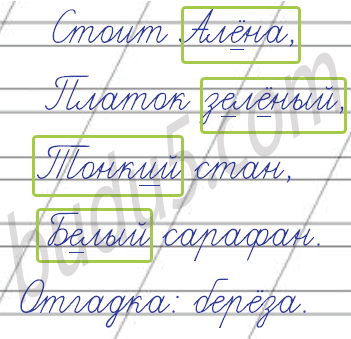 Стоит Алёна,
Платок зелёный,
Тонкий стан,
Белый сарафан.
Отгадка: берёза.
budu5.com